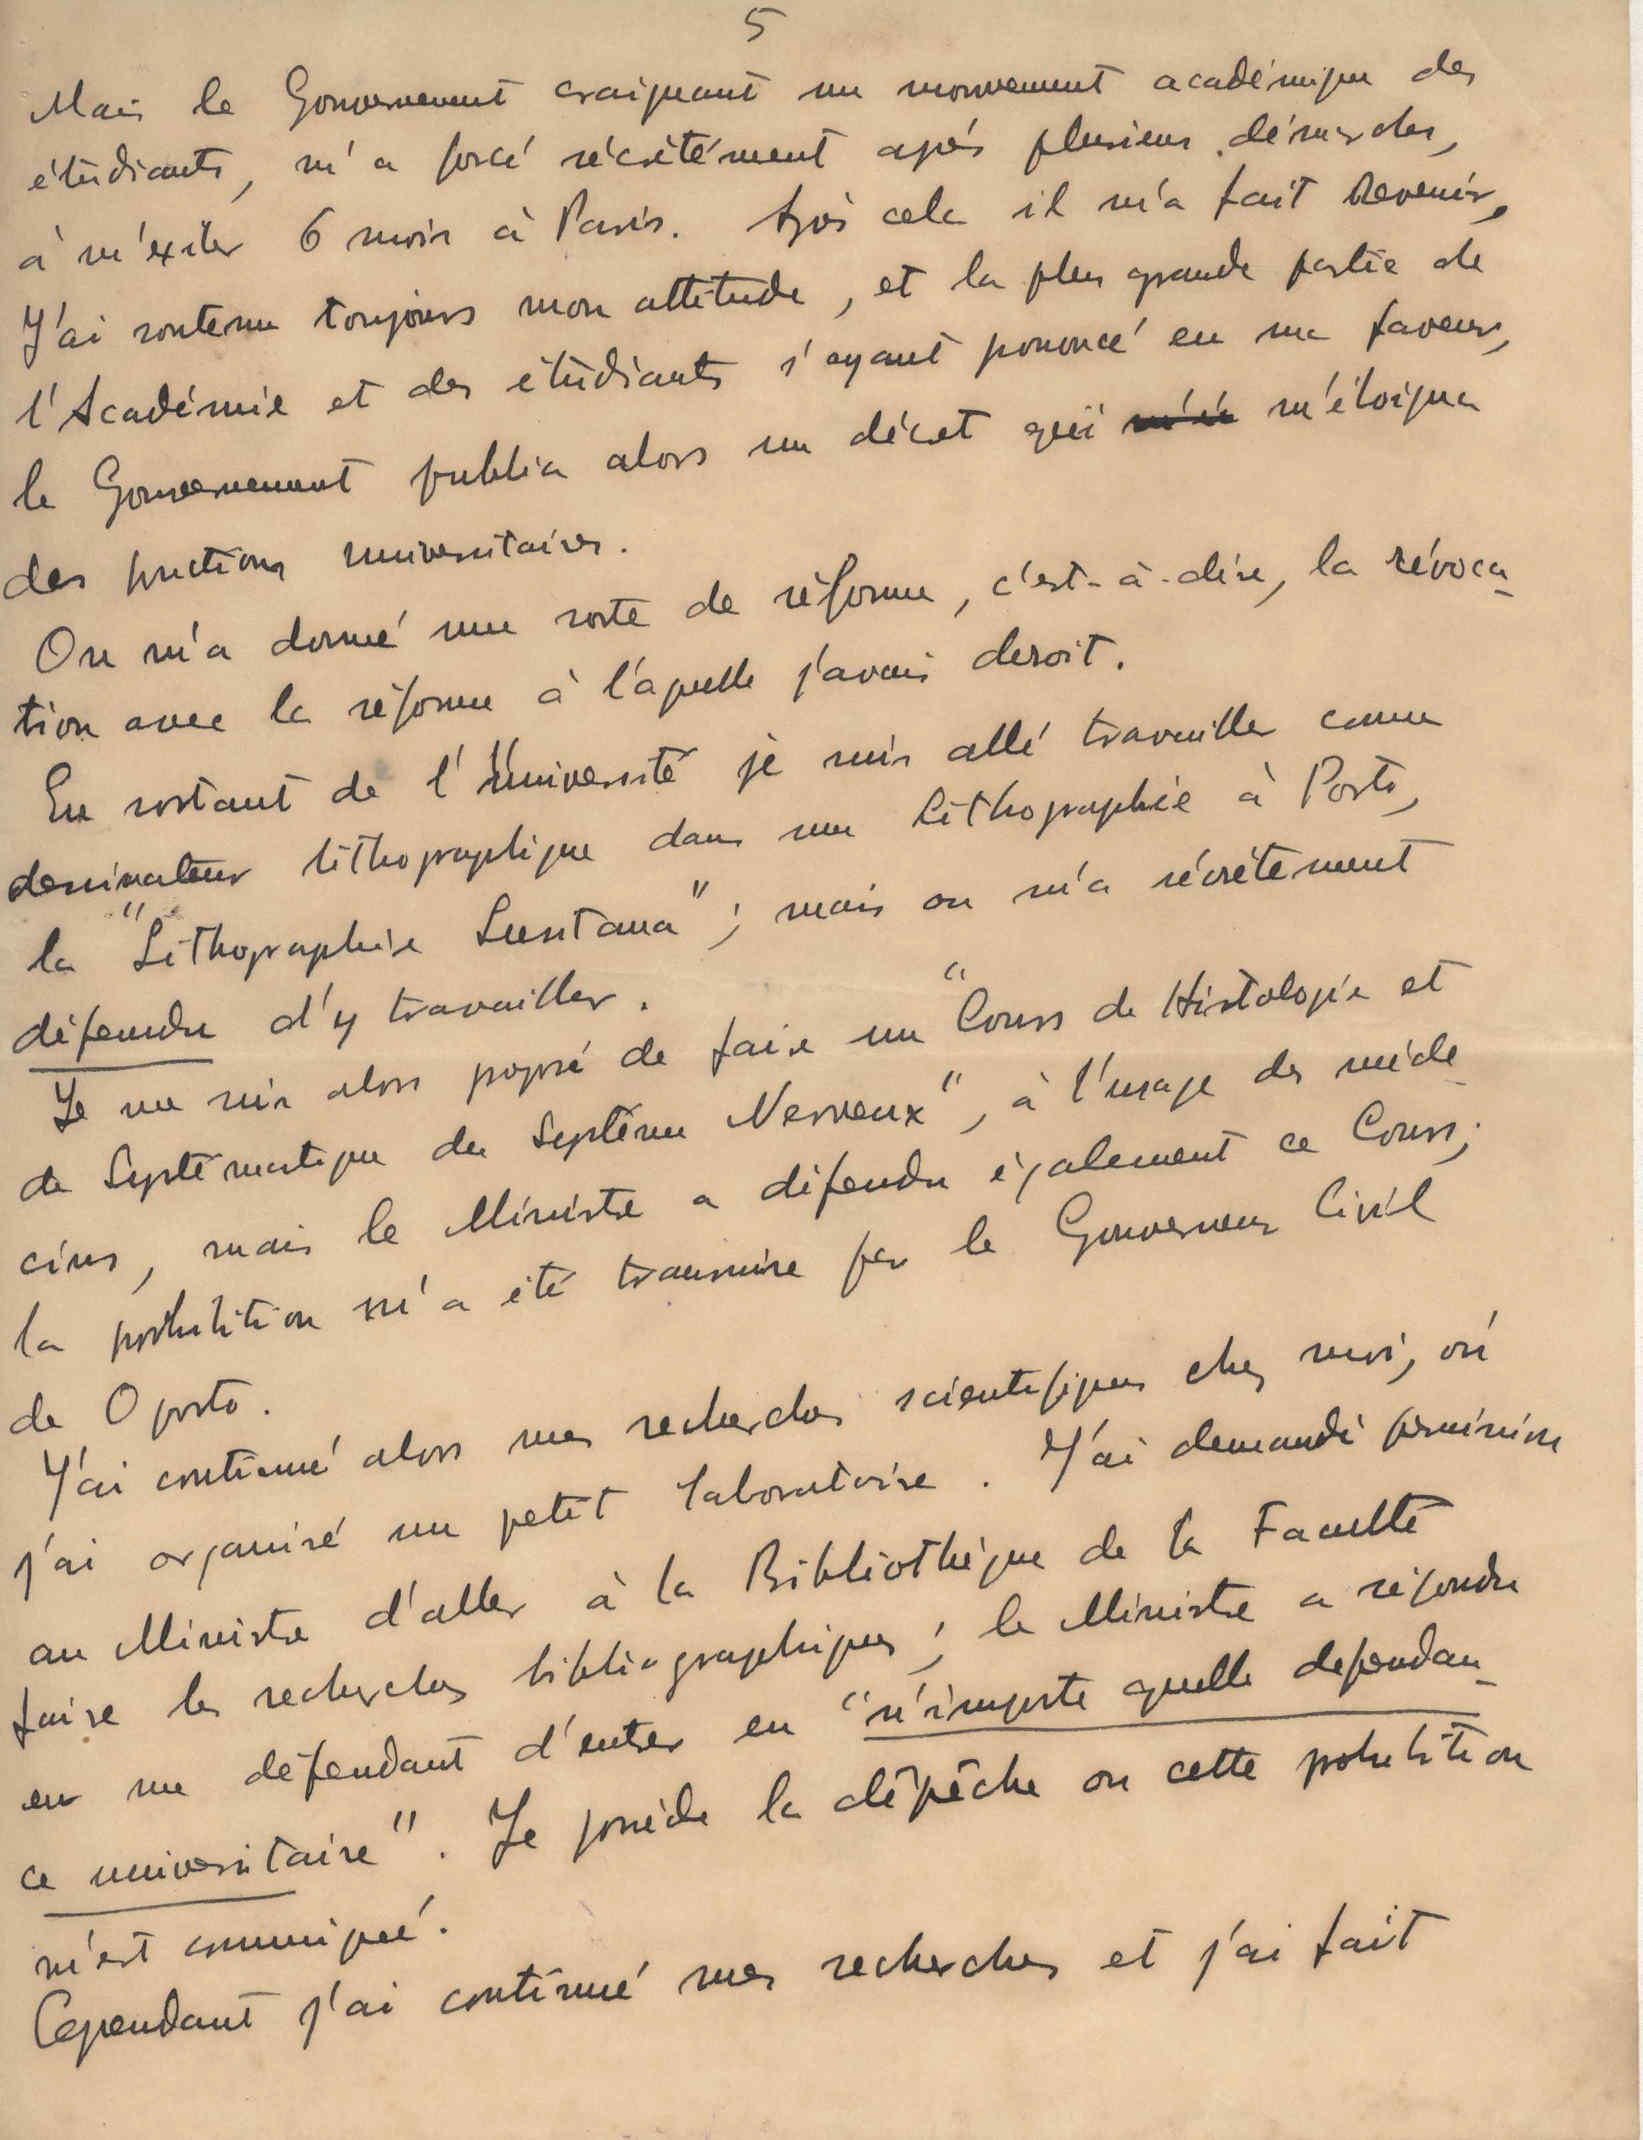 5
Mais le Gouvernement craignant un mouvement académique des
étudiants, m'a forcé sécrètément après plusieurs démarches,
à m'éxiler 6 mois à Paris. Après cela il m'a fait revenir,
J'ai soutenu toujours mon attitude, et la plus grande partie de
l'Académie et des étudiants s'ayant prononcé en ma faveur,
le Gouvernement publia alors un décret qui m'éloigna
des fonctions universitaires.
On m'a donné une sorte de réforme, c'est-à-dire, la révoca-
tion avec la réforme à l'aquelle j'avais deroit.
En sortant de l'Université je suis allé travailler comme
dessinateur lithographique dans une lithographie à Porto,
la "Lithographie Lusitana"; mais on m'a sécrètement
défendu d'y travailler.
Je me suis alors proposé de faire un "Cours de Histologie et
de Systématique du Système Nerveux", à l'usage des méde-
cins, mais le Ministre a défendu également ce Cours;
la prohibition m'a été transmise par le Gouverneur Civil
de Oporto.
J'ai continué alors mes recherches scientifiques chez moi, où
j'ai organisé un petit laboratoire. J'ai demandé permission
au Ministre d'aller à la Bibliothèque de la Faculté
faire les recherches bibliographiques; le Ministre a répondu
en me défendant d'entrer en "n'importe quelle dependan-
ce universitaire". Je possède la dépêche on cette prohibition
m'est communiqué.
Cependant j'ai continué mes recherches et j'ai fait